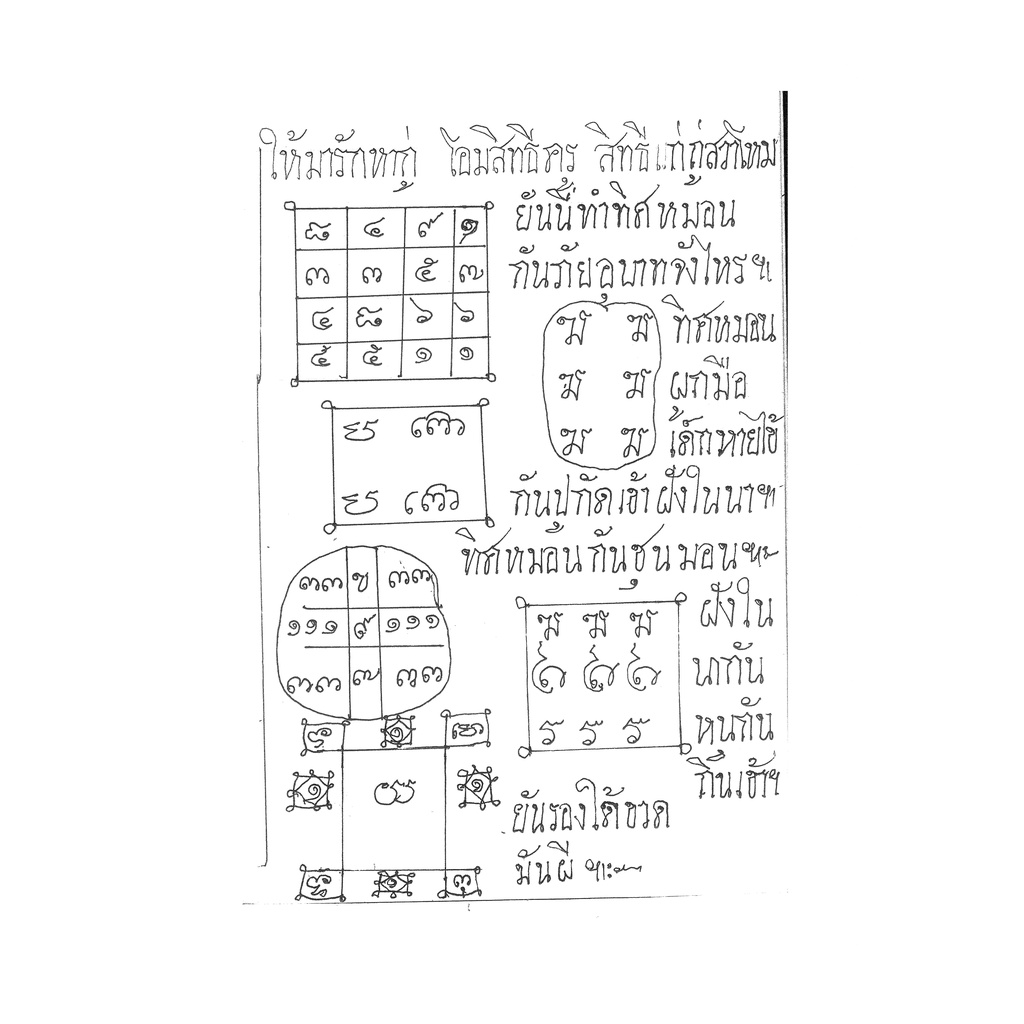 ให้มารักหากู่ โอมสิทธิครู สิทธิแก่กู่สวาโหม
ยันนี้ทำทิศหมอน
กันภัยอุบาทจังไหรฯ
๘ ๔ ๙ ๑
๓ ๓ ๕ ๗
๔ ๘ ๖ ๖
๕ ๕ ๑ ๑
ฆ ฆ ทิศหมอน
ฆ ฆ ผูกมือ
ฆ ฆ เด็กหายไข้
กันปูกัดเข้าฝังในนาฯ
ทิศหมอนกันชุนมอนฯ
๓๓ ๓๓
๑๑๑ ๙ ๑๑๑
๓๓ ๗ ๓๓
ฆ ฆ ฆ
ร ร ร
ฝังใน
นากัน
หนูกัน
กินเข้าฯ
๑
๑ ๑
ยันรองใต้ขวด
มันผีฯ